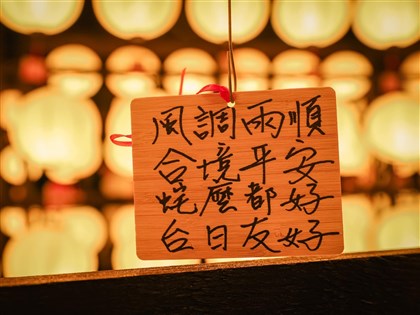 風調雨順
合境平安
麼都好
台日友好